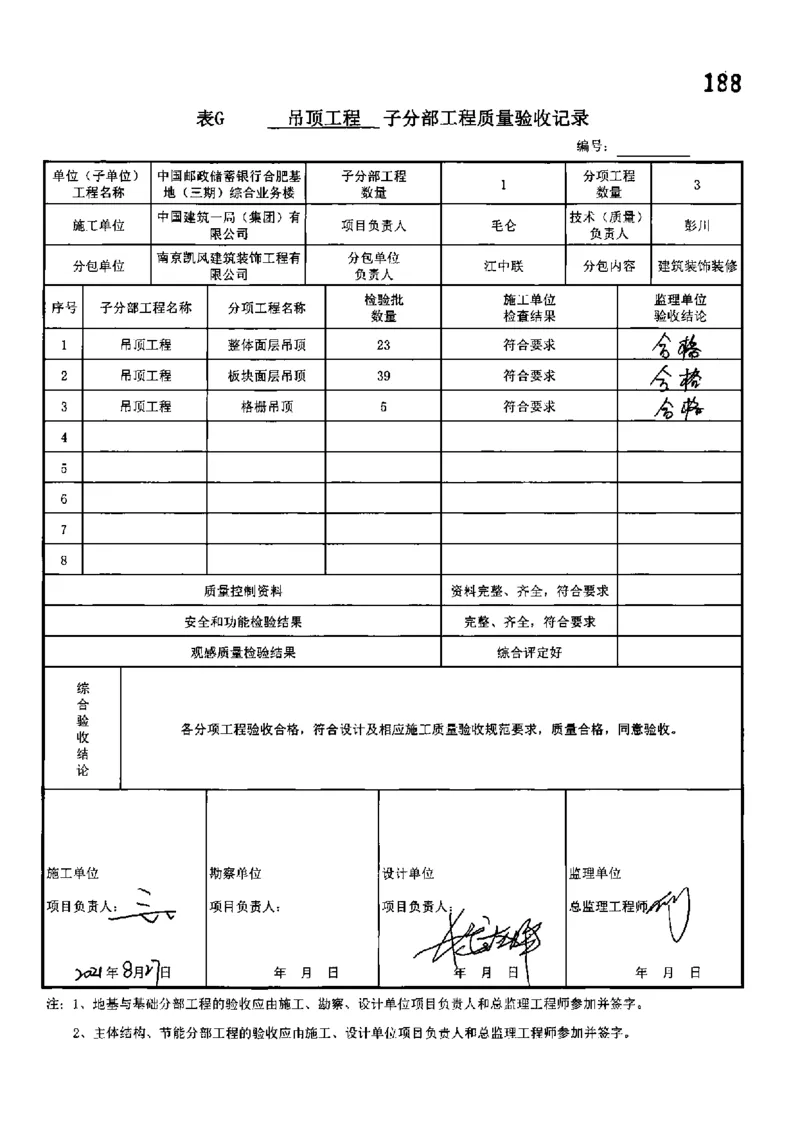 188
表G 吊顶工程 子分部工程质量验收记录
编号：
单位（子单位）工程名称 中国邮政储蓄银行合肥基地（三期）综合业务楼 子分部工程数量 1 分项工程数量 3
施工单位 中国建筑一局（集团）有限公司 项目负责人 毛仑 技术（质量）负责人 彭川
分包单位 南京凯风建筑装饰工程有限公司 分包单位负责人 江中联 分包内容 建筑装饰装修
序号 子分部工程名称 分项工程名称 检验批数量 施工单位检查结果 监理单位验收结论
1 吊顶工程 整体面层吊顶 23 符合要求 合格
2 吊顶工程 板块面层吊顶 39 符合要求 合格
3 吊顶工程 格栅吊顶 6 符合要求 合格
4
5
6
7
8
质量控制资料 资料完整、齐全，符合要求
安全和功能检验结果 完整、齐全，符合要求
观感质量检验结果 综合评定好
综合验收结论 各分项工程验收合格，符合设计及相应施工质量验收规范要求，质量合格，同意验收。
施工单位 勘察单位 设计单位 监理单位
项目负责人： 项目负责人： 项目负责人： 总监理工程师
2021年8月27日 年 月 日 年 月 日 年 月 日
注：1、地基与基础分部工程的验收应由施工、勘察、设计单位项目负责人和总监理工程师参加并签字。
2、主体结构、节能分部工程的验收应由施工、设计单位项目负责人和总监理工程师参加并签字。